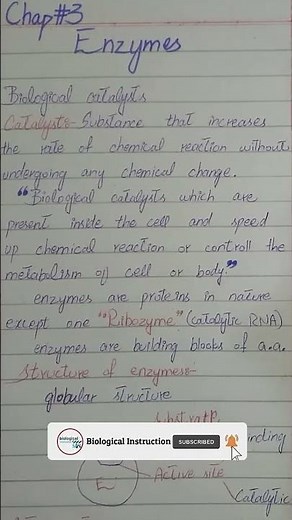 Chap#3
Enzymes
Biological catalysts
Catalysts- Substance that increases
the rate of chemical reaction without
undergoing any chemical change.
"Biological catalysts which are
present inside the cell and speed
up chemical reaction or controll the
metabolism of cell or body."
enzymes are proteins in nature
except one "Ribozyme" (catalytic RNA)
enzymes are building blocks of a.a.
Structure of enzymes-
globular structure
substrate
Biological Instruction SUBSCRIBED
E
Active site
Catalytic